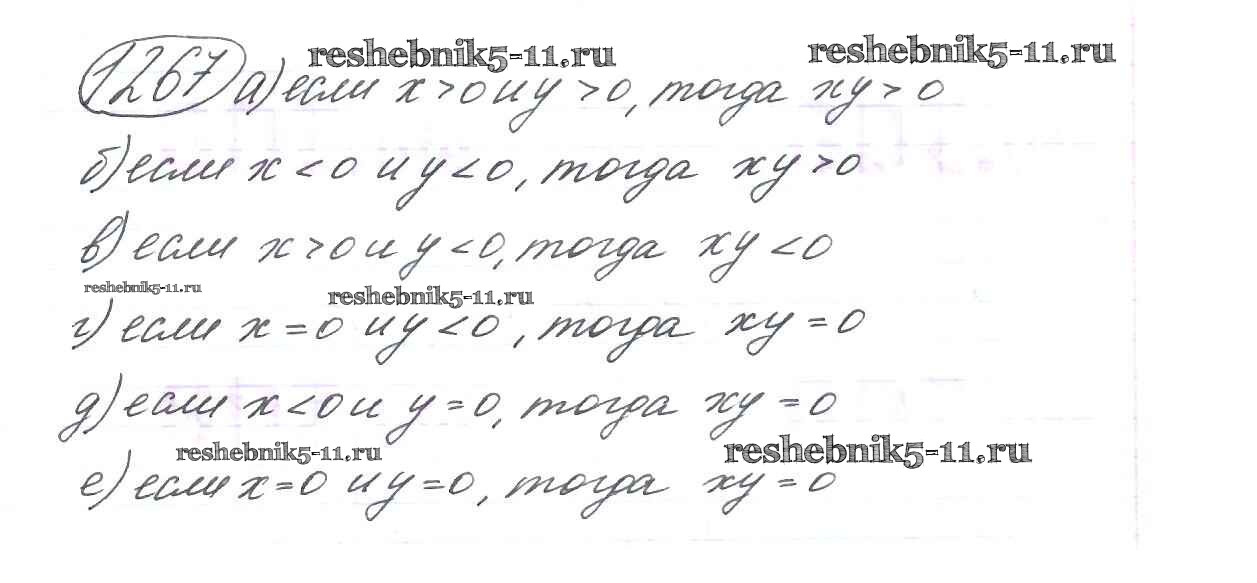 reshebnik5-11.ru reshebnik5-11.ru
1267 а) если x > 0 и y > 0, тогда xy > 0
б) если x < 0 и y < 0, тогда xy > 0
в) если x > 0 и y < 0, тогда xy < 0
reshebnik5-11.ru reshebnik5-11.ru
г) если x = 0 и y < 0, тогда xy = 0
д) если x < 0 и y = 0, тогда xy = 0
reshebnik5-11.ru reshebnik5-11.ru
е) если x = 0 и y = 0, тогда xy = 0